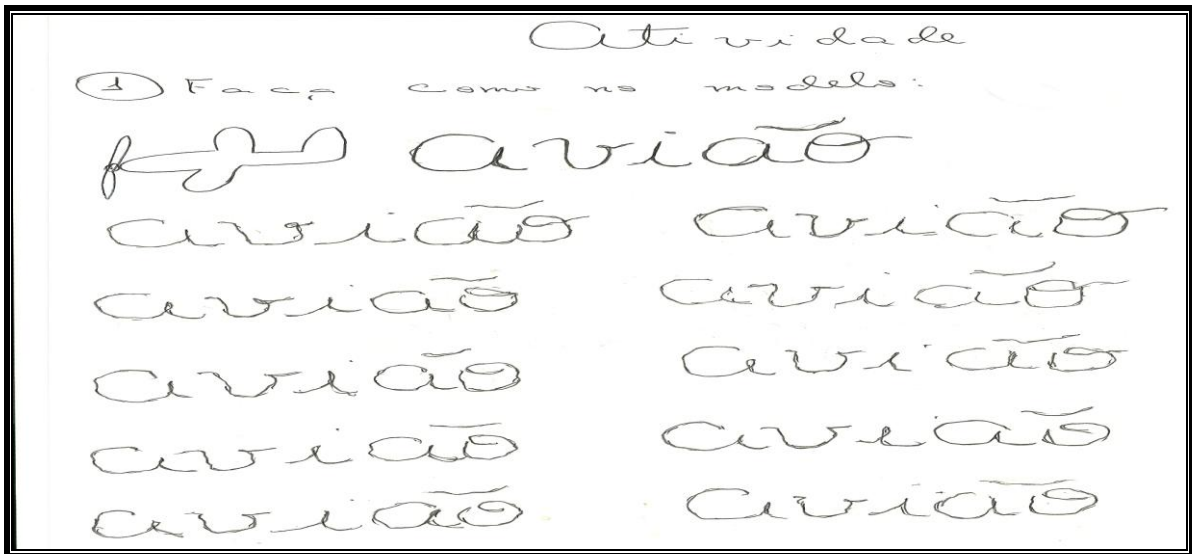 Atividade
1 Faça como no modelo:
avião
avião avião
avião avião
avião avião
avião avião
avião avião